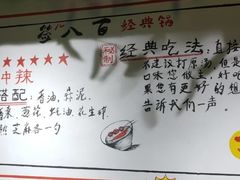 八百 经典锅
秘制
经典吃法：直接
不建议打原汤，但
口味您做主，好吃
如果您有更好的想
告诉我们一声
冲辣
搭配：香油、蒜泥、
葱花、蚝油、花生碎
芝麻各一勺